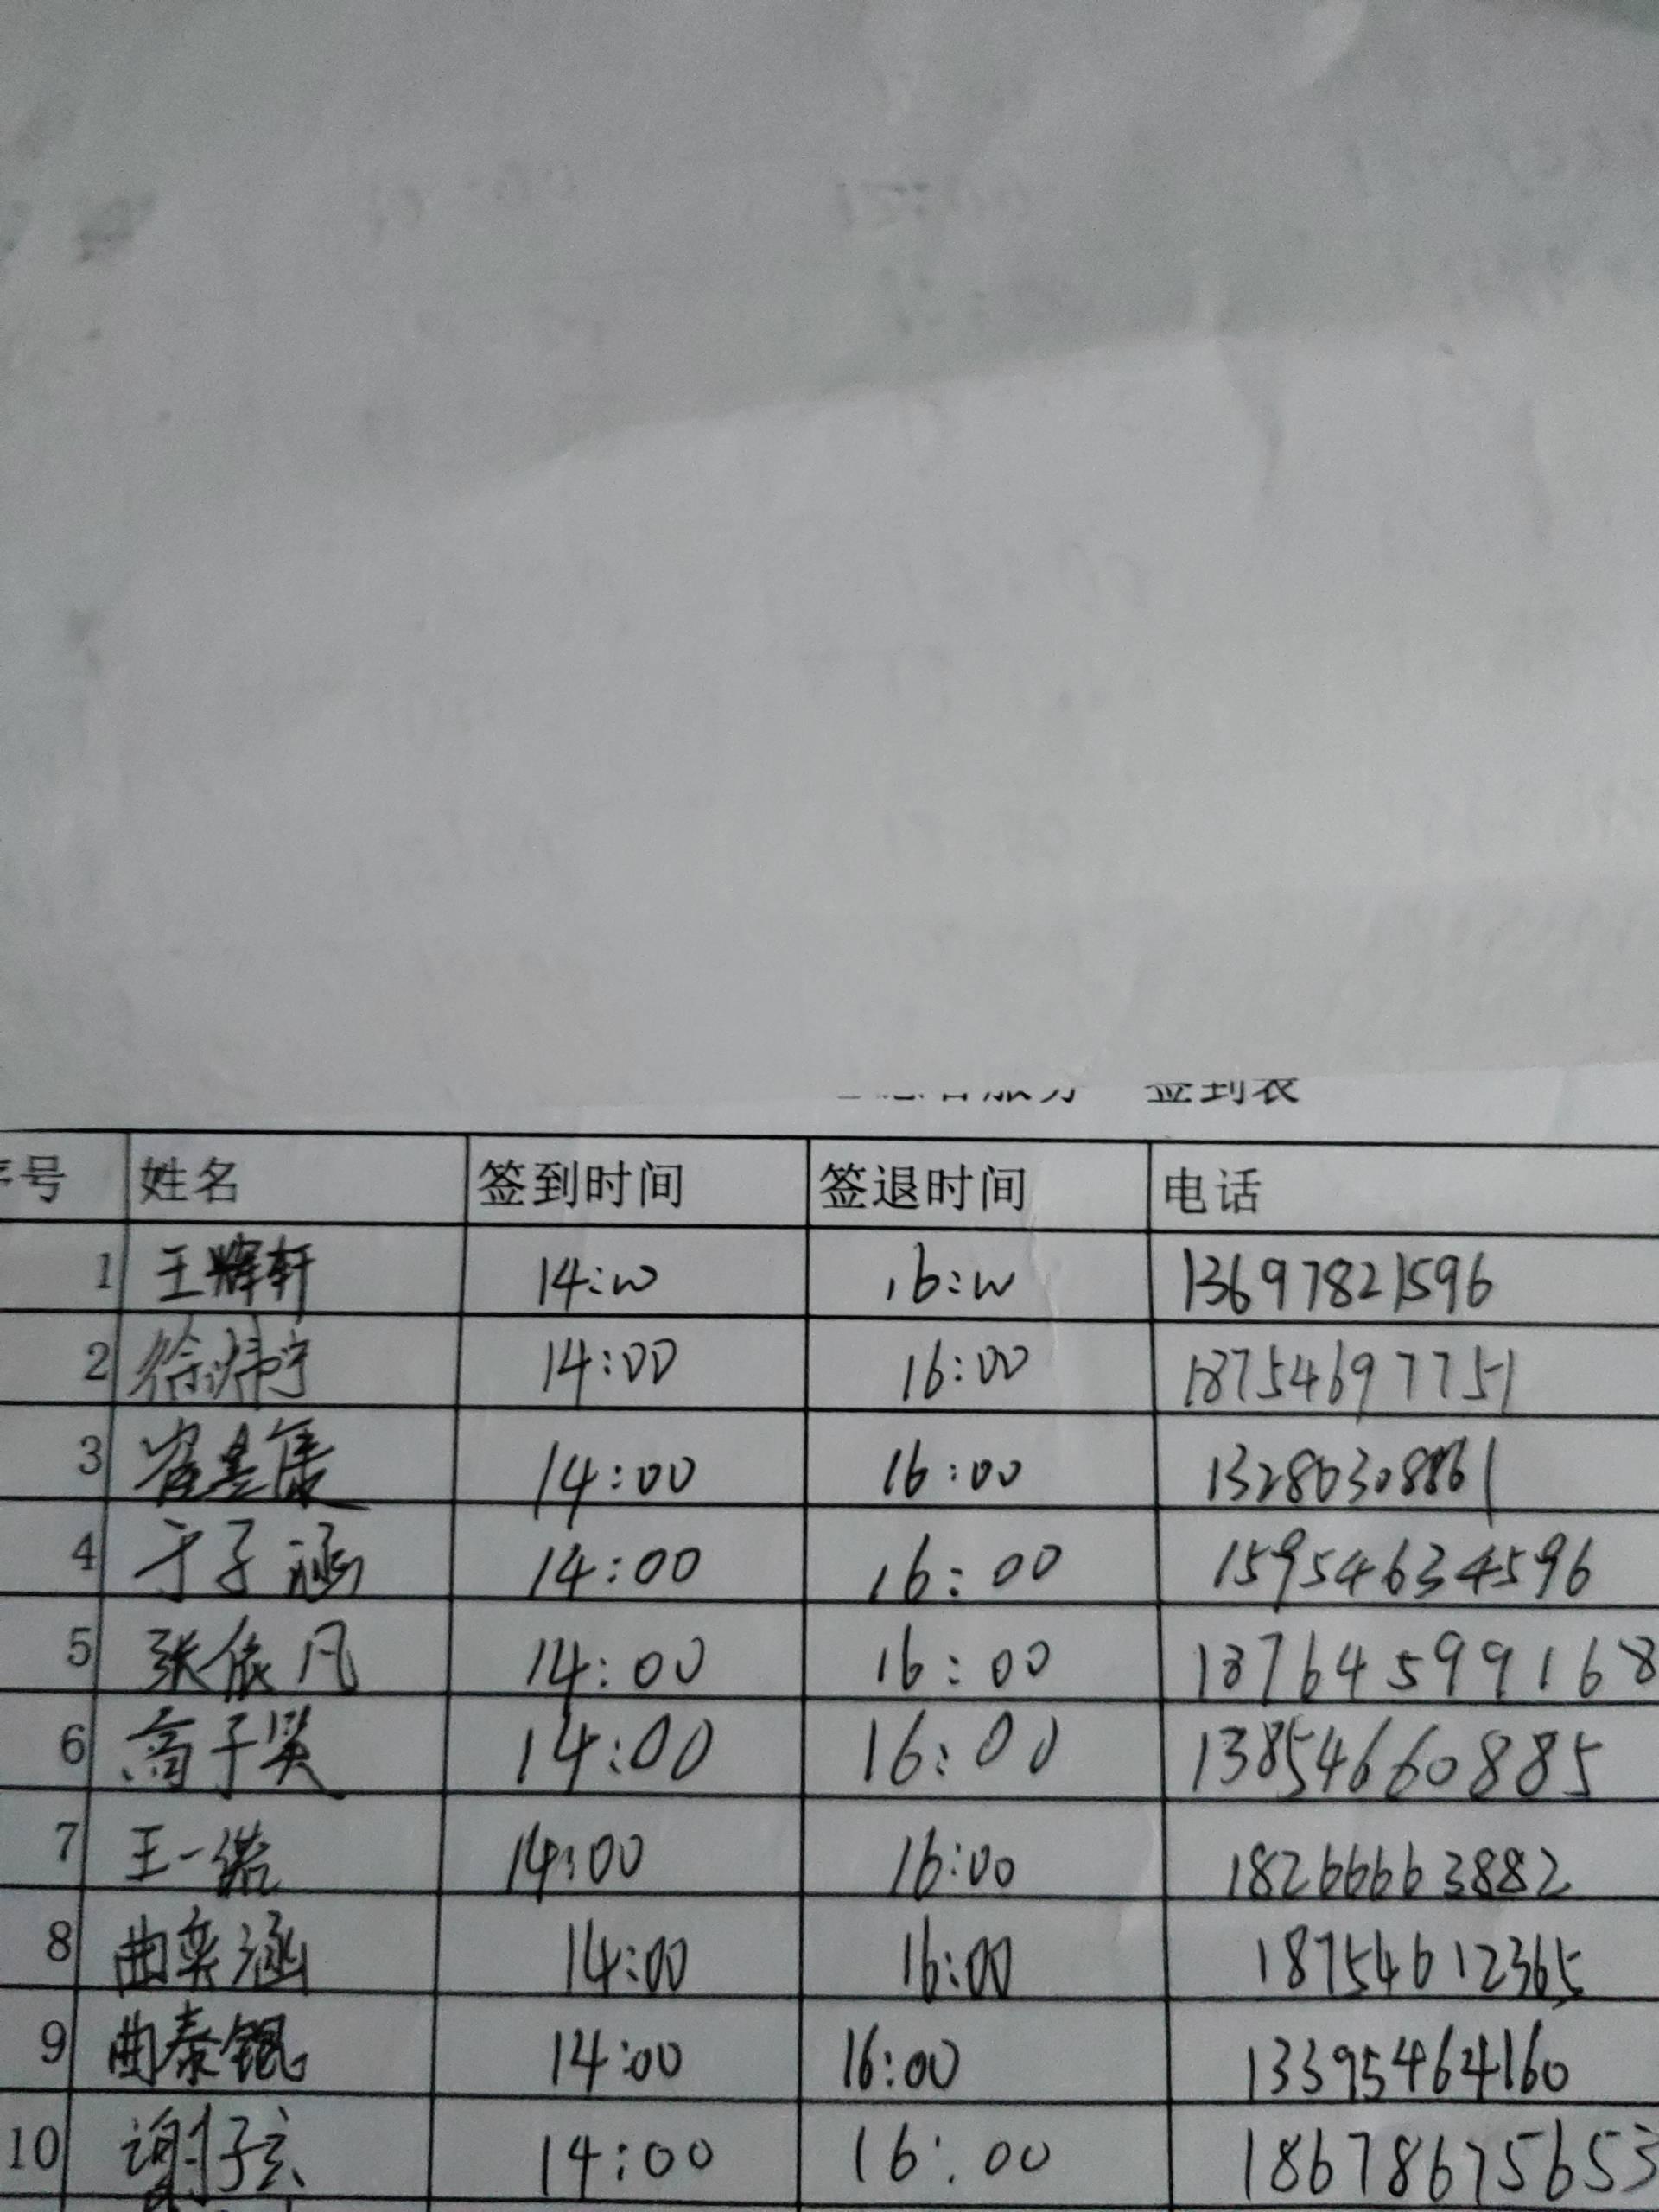 服务 签到表
序号 姓名 签到时间 签退时间 电话
1 王辉轩 14:00 16:00 13697821596
2 徐炜宁 14:00 16:00 18754697751
3 14:00 16:00 13280308861
4 于子涵 14:00 16:00 15954634596
5 张依凡 14:00 16:00 18764599168
6 高子昊 14:00 16:00 13854660885
7 王一诺 14:00 16:00 18266663882
8 曲奕涵 14:00 16:00 18754612365
9 曲泰锟 14:00 16:00 13395464160
10 谢子玄 14:00 16:00 18678675653